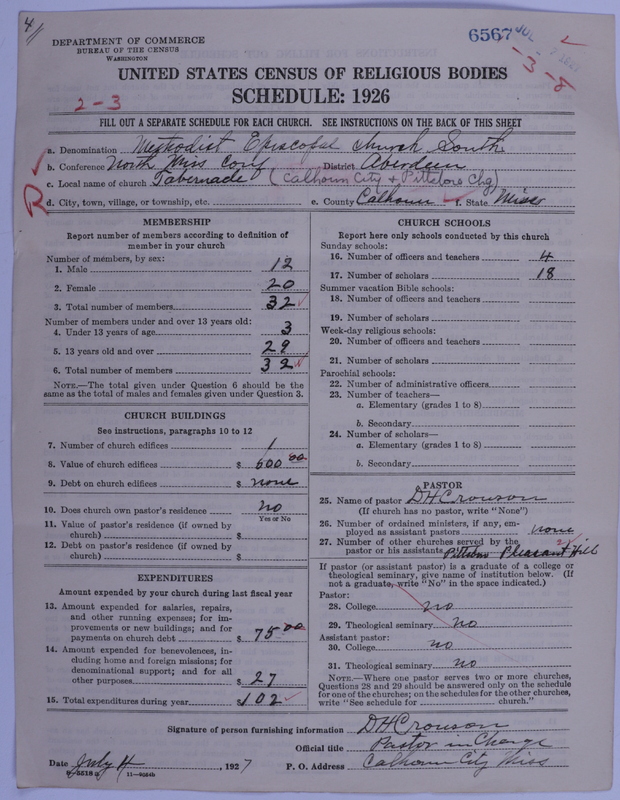 4
DEPARTMENT OF COMMERCE
BUREAU OF THE CENSUS
WASHINGTON
6567
JUL 7 1927
-3-8
UNITED STATES CENSUS OF RELIGIOUS BODIES
2-3
SCHEDULE: 1926
FILL OUT A SEPARATE SCHEDULE FOR EACH CHURCH. SEE INSTRUCTIONS ON THE BACK OF THIS SHEET
R
a. Denomination Methodist Episcopal Church South
b. Conference North Miss Conf District Aberdeen
c. Local name of church Tabernacle (Calhoun City & Pittsboro Chg)
d. City, town, village, or township, etc. e. County Calhoun f. State Miss
MEMBERSHIP
Report number of members according to definition of
member in your church
Number of members, by sex:
1. Male 12
2. Female 20
3. Total number of members 32
Number of members under and over 13 years old:
4. Under 13 years of age 3
5. 13 years old and over 29
6. Total number of members 32
NOTE.—The total given under Question 6 should be the
same as the total of males and females given under Question 3.
CHURCH BUILDINGS
See instructions, paragraphs 10 to 12
7. Number of church edifices 1
8. Value of church edifices $ 600 00
9. Debt on church edifices $ none
10. Does church own pastor's residence no
Yes or No
11. Value of pastor's residence (if owned by
church) $
12. Debt on pastor's residence (if owned by
church) $
EXPENDITURES
Amount expended by your church during last fiscal year
13. Amount expended for salaries, repairs,
and other running expenses; for im-
provements or new buildings; and for
payments on church debt $ 75 00
14. Amount expended for benevolences, in-
cluding home and foreign missions; for
denominational support; and for all
other purposes $ 27
15. Total expenditures during year $ 102
CHURCH SCHOOLS
Report here only schools conducted by this church
Sunday schools:
16. Number of officers and teachers 4
17. Number of scholars 18
Summer vacation Bible schools:
18. Number of officers and teachers
19. Number of scholars
Week-day religious schools:
20. Number of officers and teachers
21. Number of scholars
Parochial schools:
22. Number of administrative officers
23. Number of teachers—
a. Elementary (grades 1 to 8)
b. Secondary
24. Number of scholars—
a. Elementary (grades 1 to 8)
b. Secondary
PASTOR
25. Name of pastor D H Crowson
(If church has no pastor, write "None")
26. Number of ordained ministers, if any, em-
ployed as assistant pastors none
27. Number of other churches served by the 2
pastor or his assistants Pittsboro Pleasant Hill
If pastor (or assistant pastor) is a graduate of a college or
theological seminary, give name of institution below. (If
not a graduate, write "No" in the space indicated.)
Pastor:
28. College no
29. Theological seminary No
Assistant pastor:
30. College no
31. Theological seminary no
NOTE.—Where one pastor serves two or more churches,
Questions 28 and 29 should be answered only on the schedule
for one of the churches; on the schedules for the other churches,
write "See schedule for church."
Signature of person furnishing information D H Crowson
Official title Pastor in Charge
Date July 4, 1927 P. O. Address Calhoun City Miss
11-8564b